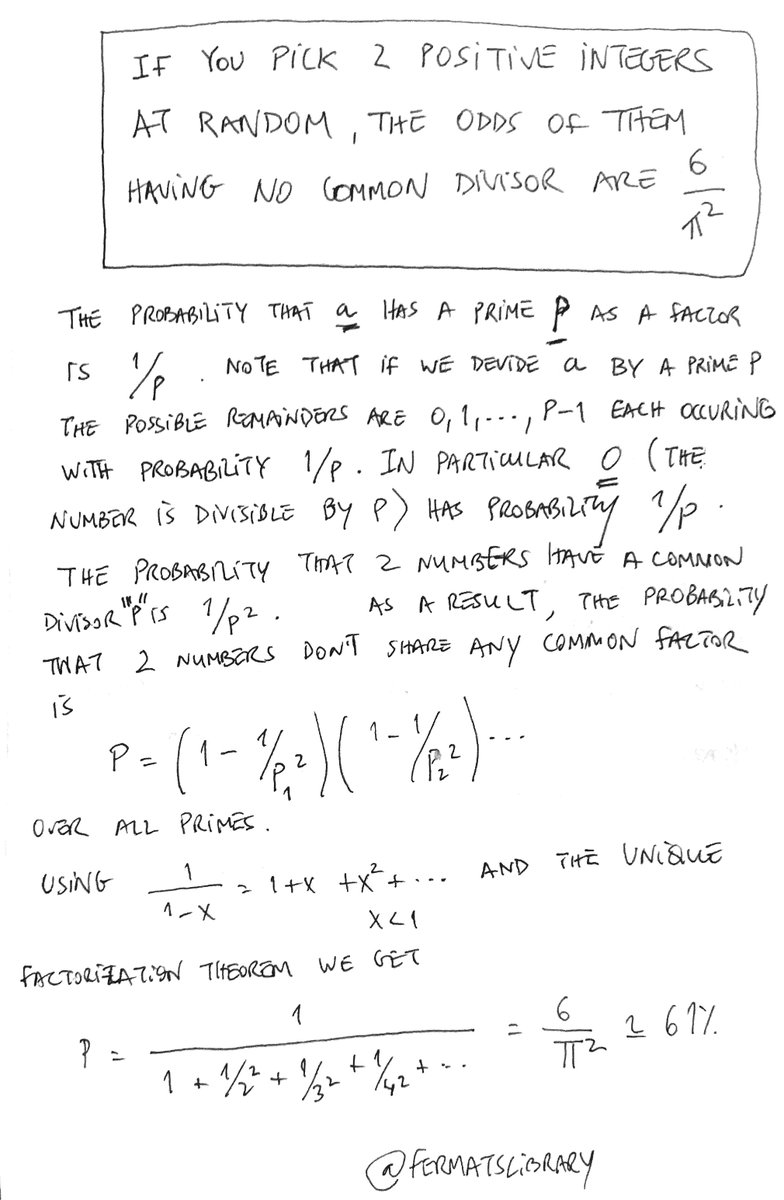 IF YOU PICK 2 POSITIVE INTEGERS
AT RANDOM, THE ODDS OF THEM
HAVING NO COMMON DIVISOR ARE 6/π²
THE PROBABILITY THAT a HAS A PRIME P AS A FACTOR
IS 1/P. NOTE THAT IF WE DEVIDE a BY A PRIME P
THE POSSIBLE REMAINDERS ARE 0, 1, ..., P-1 EACH OCCURING
WITH PROBABILITY 1/P. IN PARTICULAR 0 (THE
NUMBER IS DIVISIBLE BY P) HAS PROBABILITY 1/P.
THE PROBABILITY THAT 2 NUMBERS HAVE A COMMON
DIVISOR "P" IS 1/P². AS A RESULT, THE PROBABILITY
THAT 2 NUMBERS DON'T SHARE ANY COMMON FACTOR
IS
P = (1 - 1/P₁²)(1 - 1/P₂²)...
OVER ALL PRIMES.
USING 1/(1-X) = 1+X+X²+... AND THE UNIQUE
X<1
FACTORIZATION THEOREM WE GET
P = 1/(1 + 1/2² + 1/3² + 1/4² + ...) = 6/π² ≃ 61%
@FERMATSLIBRARY